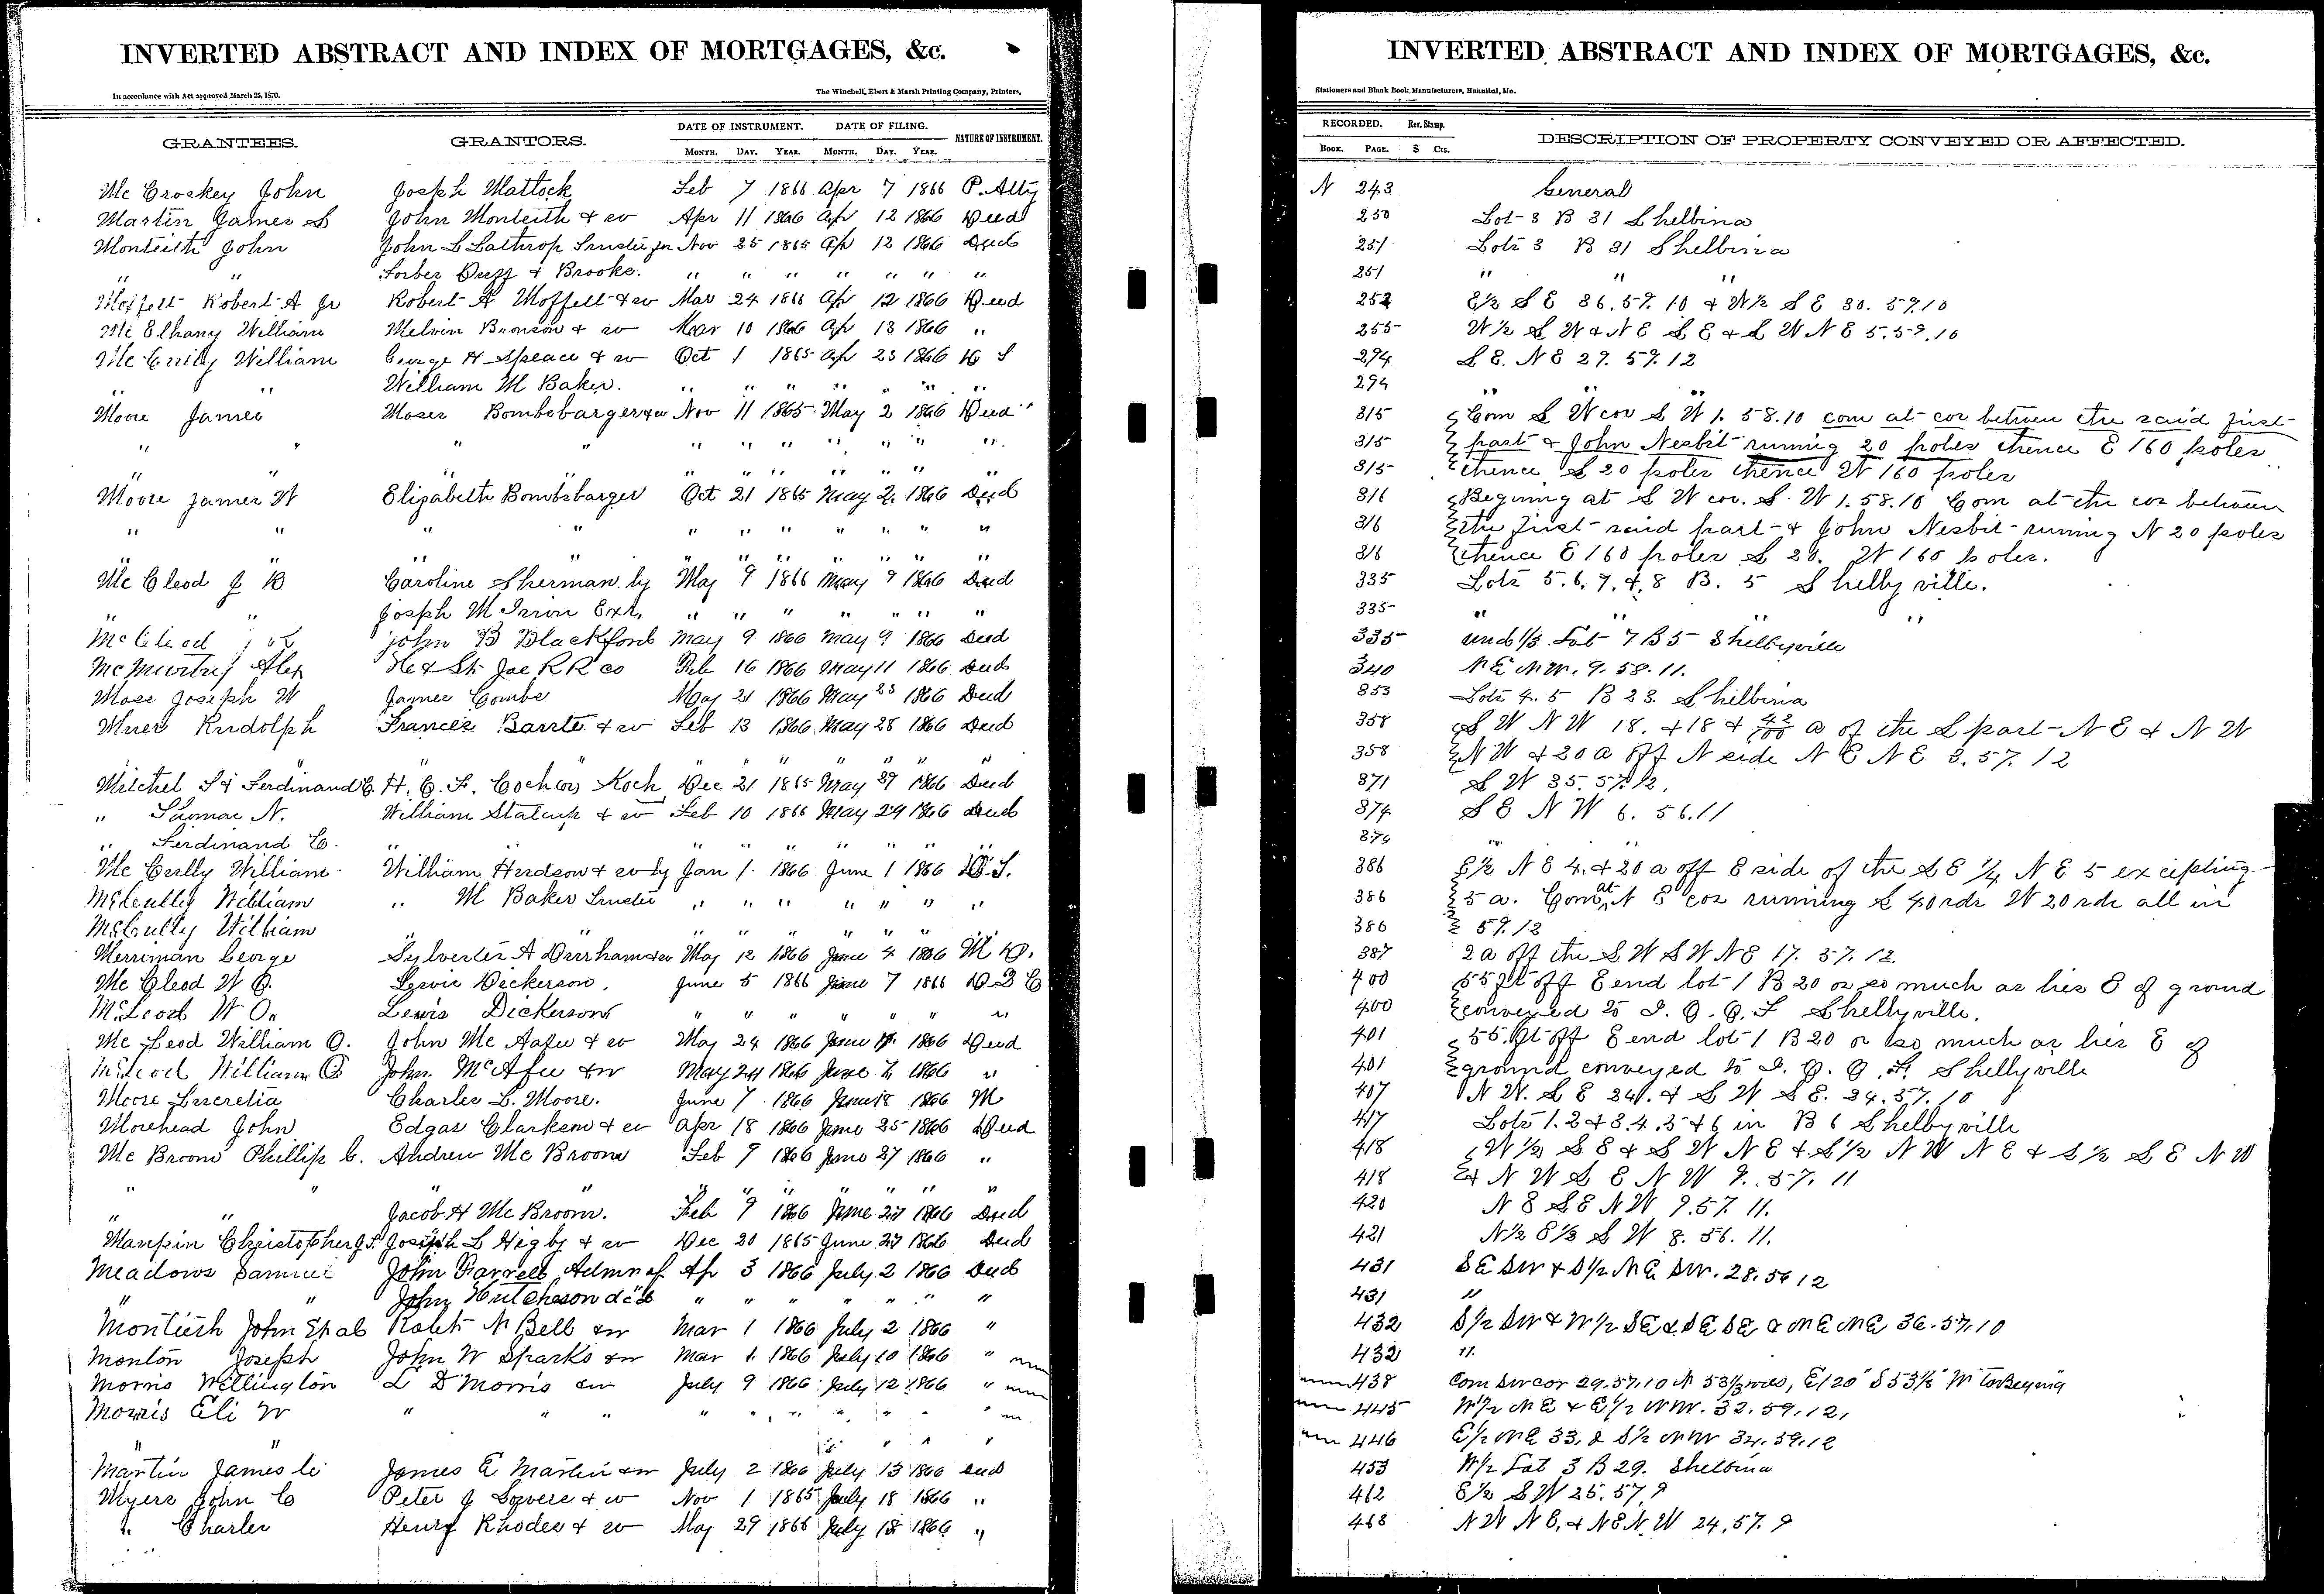 INVERTED ABSTRACT AND INDEX OF MORTGAGES, &c.
In accordance with Act approved March 25, 1870.
The Winchell, Ebert & Marsh Printing Company, Printers,
GRANTEES. GRANTORS. DATE OF INSTRUMENT. DATE OF FILING. NATURE OF INSTRUMENT.
MONTH. DAY. YEAR. MONTH. DAY. YEAR.
Mc Croskey John Joseph Mattock Feb 7 1866 Apr 7 1866 P. Atty
Martin James S John Monteith & w Apr 11 1866 Ap 12 1866 Deed
Monteith John John L Lathrop Trustee for Nov 25 1865 Ap 12 1866 Deed
" " Forbes & Brooks. " " " " " " "
Moffett Robert A Jr Robert A Moffett & w Mar 24 1866 Ap 12 1866 Deed
Mc Elhany William Melvin Bronson & w Mar 10 1866 Ap 13 1866 "
Mc Cully William George H Speace & w Oct 1 1865 Ap 23 1866 D S
" " William M Baker. " " " " " " "
Moore James Moses Bombsbarger & w Nov 11 1865 May 2 1866 Deed
" " " " " " " " " " "
" " " " " " " " " " "
Moore James W Elizabeth Bombsbarger Oct 21 1865 May 2 1866 Deed
" " " " " " " " " " "
" " " " " " " " " " "
Mc Cleod J B Caroline Sherman by May 9 1866 May 9 1866 Deed
" " Joseph M Irion Exr. " " " " " " "
McCleod John B Blackford May 9 1866 May 9 1866 Deed
McMurtry Alex H & St Joe RR co Feb 16 1866 May 11 1866 Deed
Moss Joseph W James Combs May 21 1866 May 23 1866 Deed
Rudolph Frances Barrte & w Feb 13 1866 May 28 1866 Deed
" " " " " " " "
Mitchel T & Ferdinand C. H. C. F. Koch Dec 21 1865 May 29 1866 Deed
" Thomas N. William Stalcup & w Feb 10 1866 May 29 1866 Deed
" Ferdinand C. " " " " " " " "
Mc Cully William William Hudson & w by Jan 1 1866 June 1 1866 D. S.
McCully William " M Baker Trustee " " " " " " "
McCully William " " " " " " "
Merriman George Sylvester A Durrham & w May 12 1866 June 4 1866 M D.
Mc Cleod W O. Lewis Dickerson. June 5 1866 June 7 1866 Q C
McLeod W O. Lewis Dickerson " " " " " " "
Mc Leod William O. John Mc Aafee & w May 24 1866 June 7 1866 Deed
McLeod William O John McAfee & w May 24 1866 June 7 1866 "
Moore Lucretia Charles L. Moore. June 7 1866 June 18 1866 M
Morehead John Edgar Clarkson & w Apr 18 1866 June 25 1866 Deed
Mc Broom Phillip C. Andrew Mc Broom Feb 9 1866 June 27 1866 "
" " " " " " " " " "
" " Jacob H Mc Broom. Feb 9 1866 June 27 1866 Deed
Maupin Christopher J. Joseph L Higby & w Dec 20 1865 June 27 1866 Deed
Meadows Samuel John Farrell Admn of Ap 3 1866 July 2 1866 Deed
" " John Hutcheson " " " " " " "
Montieth John Robt N Bell & w Mar 1 1866 July 2 1866 "
Monton Joseph John W Sparks & w Mar 1 1866 July 10 1866 "
Morris Wellington L D Morris & w July 9 1866 July 12 1866 "
Morris Eli W " " " " " " " " " "
" " " " " "
Martin James C James E Martin & w July 2 1866 July 13 1866 Deed
Myers John C Peter J Sowers & w Nov 1 1865 July 18 1866 "
" Charles Henry Rhodes & w May 29 1866 July 18 1866 "
INVERTED ABSTRACT AND INDEX OF MORTGAGES, &c.
Stationers and Blank Book Manufacturers, Hannibal, Mo.
RECORDED. Rev. Stamp. DESCRIPTION OF PROPERTY CONVEYED OR AFFECTED.
BOOK. PAGE. $ Cts.
N 243 General
250 Lot 3 B 31 Shelbina
251 Lots 3 B 31 Shelbina
251 " " "
252 E½ S E 36. 57. 10 & W½ S E 30. 57.10
255 W½ S W & N E S E & S W N E 5. 57. 10
294 S E. N E 29. 57. 12
294 " "
315 Com S W cor S W 1. 58.10 com at cor between the said first
315 part & John Nesbit running 20 poles thence E 160 poles
315 thence S 20 poles thence W 160 poles
316 Begining at S W cor. S. W 1. 58.10 Com at the cor between
316 the first said part & John Nesbit running N 20 poles
316 thence E 160 poles S 20. W 160 poles.
335 Lots 5. 6. 7. & 8 B. 5 Shelbyville.
335 " " "
335 und 1/3 Lot 7 B 5 Shelbyville
340 N E N W. 9. 58. 11.
353 Lots 4. 5 B 23. Shelbina
358 S W N W 18. & 18 & 42/100 a of the S part N E & N W
358 N W & 20 a off N side N E N E 3. 57. 12
371 S W 35. 57. 12.
374 S E N W 6. 56. 11
374 " "
386 E½ N E 4. & 20 a off E side of the S E ¼ N E 5 excepting
386 5 a. Com at N E cor running S 40 rds W 20 rds all in
386 59. 12
387 2 a off the S W S W N E 17. 57. 12.
400 55 ft off E end lot 1 B 20 or so much as lies E of ground
400 conveyed to I. O. O. F Shelbyville.
401 55. ft off E end lot 1 B 20 or so much as lies E of
401 ground conveyed to I. O. O. F. Shelbyville
407 N W. S E 34. & S W S E. 34. 57. 10
417 Lots 1. 2 & 3. 4. 5 & 6 in B 6 Shelbyville
418 W ½ S E & S W N E & S ½ N W N E & S ½ S E N W
418 & N W S E N W 9. 57. 11
420 N E S E N W 9. 57. 11.
421 N½ E½ S W 8. 56. 11.
431 S E S W & S ½ N E S W. 28. 56 12
431 "
432 S/2 SW & W/2 SE & SE SE & NE NE 36. 57. 10
432 "
438 Com SW cor 29. 57. 10 N 53⅓ rds, E 120 " S 53⅓ " W to Begning
445 W ½ N E & E ½ N W. 32. 59. 12,
446 E ½ N E 33, & S ½ N W 34. 59. 12
453 W/2 Lot 3 B 29. Shelbina
462 E ½ S W 25. 57. 9
468 N W N E, & N E N. W 24, 57. 9